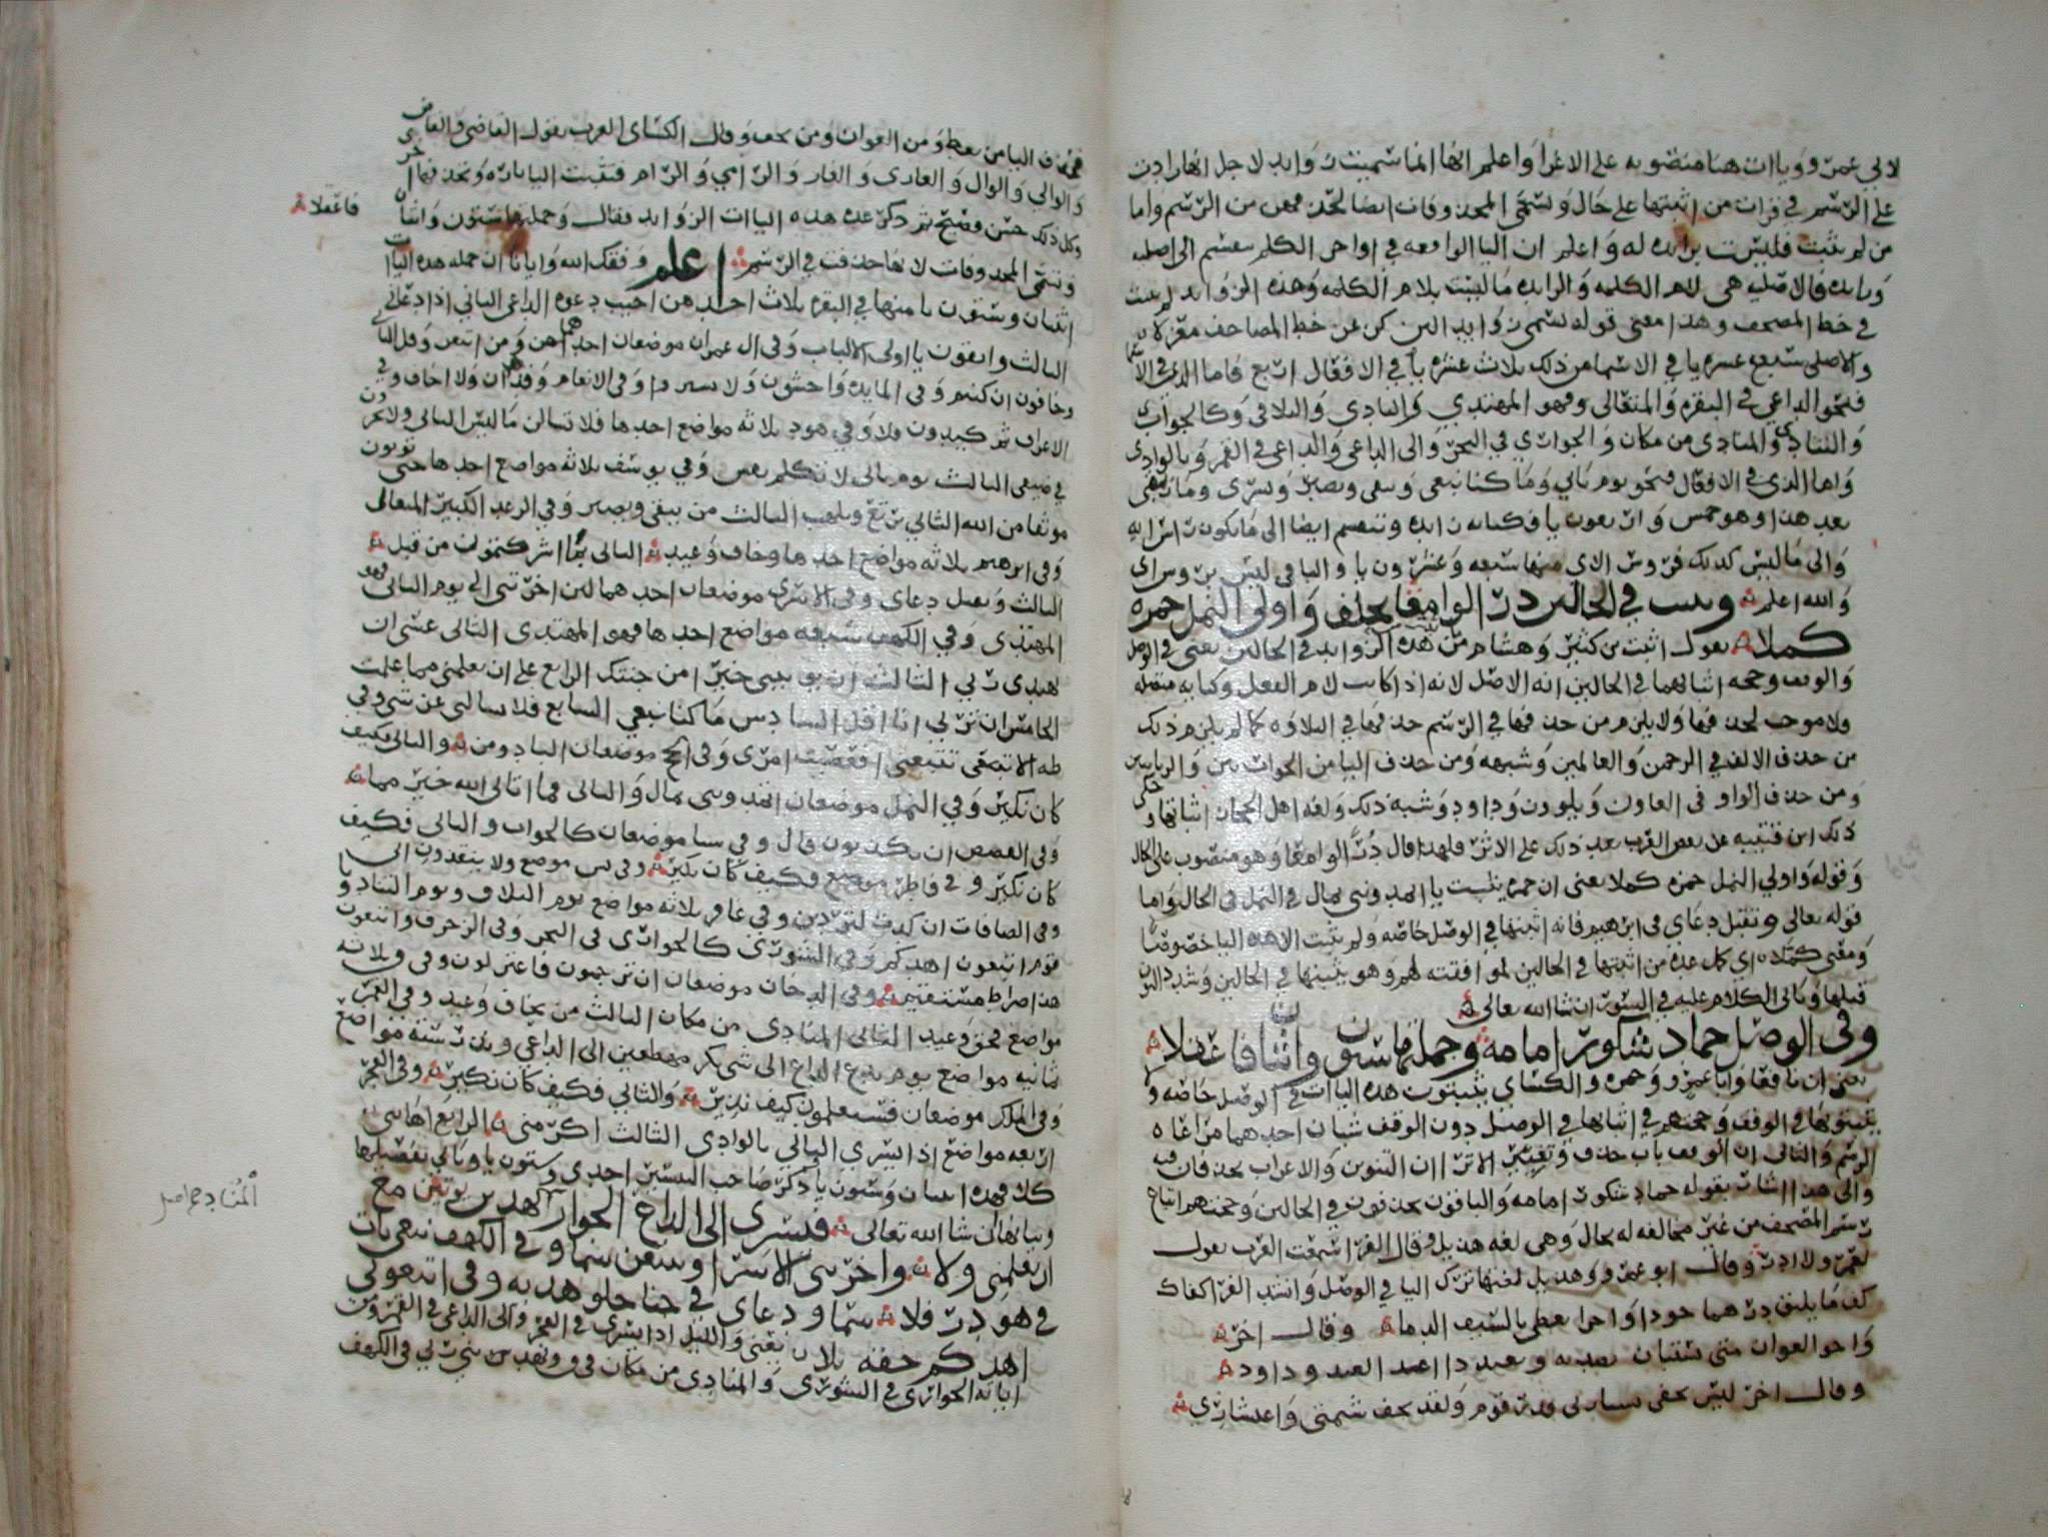 لابي عمرو وياات هنا منصوبه على الاغرا واعلم انها انما سميت زوايد لاجل انها زادت
على الرسم في قراة من اثبتها على حال وتسمى المحذوفات ايضا لحذفهن من الرسم واما
من لم يثبت فليست بزايده له واعلم ان اليا الواقعه في اواخر الكلم تنقسم الى اصليه
وزايده فالاصليه هي لام الكلمه والزايده ما ليست بلام الكلمه وهذه الزوايد لم تثبت
في خط المصحف وهذا معنى قوله تسمى زوايد البن كن عن خط المصاحف معزلا
والاصلي سبعه عشره يا في الاسما من ذلك ثلاث عشره يا في الافعال اربع فاما الذي في الاسما
فنحو الداعي في البقره والمتعالي وفهو المهتدي والبادي والتلاقي وكالجواب
والتنادي والمنادي من مكان والجواري في البحر والى الداعي والداعي في القمر وبالوادي
واما الذي في الافعال فنحو يوم ياتي وما كنا نبغي ويتقي ويصبر ويسري وما بقي
بعد هذا وهو خمس واربعون يا فكياته زايده وتنقسم ايضا الى ما يكون راس ايه
والى ما ليس كذلك فروس الاي منها سبعه وعشرون يا والباقي ليس بروس اي
والله اعلم وتثبت في الحالين درا لوامعا بخلف واولى النمل حمزه
كملا يقول اثبت بن كثير وهشام من هذه الزوايد في الحالين يعني في الوصل
والوقف وحجه اثباتهما في الحالين انه الاصل لانه اذا كانت لام الفعل وكنايه متصله
ولا موجب لحذفها ولا يلزم من حذفها في الرسم حذفها في التلاوه كما لم يلزم ذلك
من حذف الالف في الرحمن والعالمين وشبهه ومن حذف اليا من الحواريين والربانيين
ومن حذف الواو في الغاون ويلوون وداود وشبه ذلك ولغه اهل الحجاز اثباتها وحكى
ذلك ابن قتيبه عن بعض العرب بعد ذلك على الاثر فلهذا قال درا لوامعا وهو منصوب على الحال
وقوله واولي النمل حمزه كملا يعني ان حمزه يثبت يا اتمدونني بمال في النمل في الحال واما
قوله تعالى وتقبل دعاي في ابرهيم فانه اثبتها في الوصل خاصه ولم يثبت الا هذه اليا خصوصا
ومعنى كملا اي كمل عده من اثبتها في الحالين لموافقته لهم وهو يثبتها في الحالين وشدد النون
قبلها وياتي الكلام عليه في السور ان شا الله تعالى
وفي الوصل حماد شكور امامه وجملتها ستون واثنان فاعقلا
يعني ان نافعا وابا عمرو وحمزه والكسائي يثبتون هذه الياات في الوصل خاصه ولا
يثبتونها في الوقف وحجتهم في اثباتها في الوصل دون الوقف شيان احدهما مراعاه
الرسم والثاني ان الوقف باب حذف وتغيير الا ترا ان التنوين والاعراب يحذفان فيه
والى هذا اشار بقوله حماد شكور امامه والباقون يحذفون في الحالين وحجتهم اتباع
رسم المصحف من غير مخالفه له بحال وهي لغه هذيل وقال الفرا سمعت العرب يقول
لعمرو لا ادر وقال ابو عمرو وهذيل لغتها ترك اليا في الوصل وانشد الفرا كفاك
كف ما يليق درهما جودا واخرا يعطي بالسيف الدما وقال اخر
واخو الغوان متى يشان يصرمنه ويعدن اعدا بعيد وداد
وقال اخر ليس يخفى يساري قدر قوم ولقد يخف شيمتي واعساري
فحذف اليا من يعط ومن الغوان ومن يخف وقال الكسائي العرب يقول القاضي والقاض
والوالي والوال والغازي والغاز والرامي والرام فتثبت اليا تاره وتحذفها اخرى
وكل ذلك حسن فصيح ثم ذكر عده هذه الياات الزوايد فقال وجملتها ستون واثنان
فاعقلا
وتسمى المحذوفات لانها حذفت في الرسم اعلم وفقك الله وايانا ان جمله هذه الياات
اثنتان وستون يا منها في البقره ثلاث احدهن اجيب دعوه الداعي الثاني اذا دعاني
الثالث واتقون يا اولي الالباب وفي ال عمران موضعان احدهما ومن اتبعن وقل الثاني
وخافون ان كنتم وفي المايده واخشون ولا تشتروا وفي الانعام وقد هدان ولا اخاف وفي
الاعراف ثم كيدون فلا وفي هود ثلاثه مواضع احدها فلا تسالن ما ليس الثاني ولا تخزون
في ضيفي الثالث يوم ياتي لا تكلم نفس وفي يوسف ثلاثه مواضع احدها حتى توتون
موثقا من الله الثاني نرتع ونلعب الثالث من يتقي ويصبر وفي الرعد الكبير المتعالي
وفي ابرهيم ثلاثه مواضع احدها وخاف وعيد الثاني بما اشركتمون من قبل
الثالث وتقبل دعاي وفي الاسرى موضعان احدهما لين اخرتني الى يوم الثاني فهو
المهتدي وفي الكهف سبعه مواضع احدها فهو المهتدي الثاني عسى ان
يهدي ربي الثالث ان يوتيني خيرا من جنتك الرابع على ان تعلمني مما علمت
الخامس ان ترني انا اقل السادس ما كنا نبغي السابع فلا تسالني عن شي وفي
طه الا تتبعني افعصيت امري وفي الحج موضعان الباد ومن والثاني فكيف
كان نكير وفي النمل موضعان اتمدونني بمال والثاني فما اتاني الله خير مما
وفي القصص ان يكذبون قال وفي سبا موضعان كالجواب والثاني فكيف
كان نكير وفي فاطر موضع فكيف كان نكير وفي يس موضع ولا ينقذون اني
وفي الصافات ان كدت لتردين وفي غافر ثلاثه مواضع يوم التلاق ويوم التناد ويا
قوم اتبعون اهدكم وفي الشورى كالجواري في البحر وفي الزخرف واتبعون
هذا صراط مستقيم وفي الدخان موضعان ان ترجمون فاعتزلون وفي ق ثلاثه
مواضع فحق وعيد الثاني المنادي من مكان الثالث من يخاف وعيد وفي القمر
ثمانيه مواضع يوم يدع الداع الى شي نكر مهطعين الى الداعي ونذر سته مواضع
وفي الملك موضعان فستعلمون كيف نذير والثاني فكيف كان نكير وفي الفجر
اربعه مواضع اذا يسري الثاني بالوادي الثالث اكرمني الرابع اهانني
كلا فهذه اثنتان وستون يا ذكر صاحب التيسير احدى وستون يا وياتي تفصيلها
وبيانها ان شا الله تعالى فيسري الى الداع الجوار المناد يهدين يوتين مع
ان يعلمني ولا واخرتني الاسرا وتتبعن سما وفي الكهف نبغي يات
في هود رفلا سما ودعاي في جنا حلو هديه وفي اتبعوني
اهدكم حقه بلا يعني والليل اذا يسري في الفجر والى الداعي في القمر ومن
اياته الجواري في الشورى والمنادي من مكان في ق ويهدين ربي في الكهف
المناد صح اصل